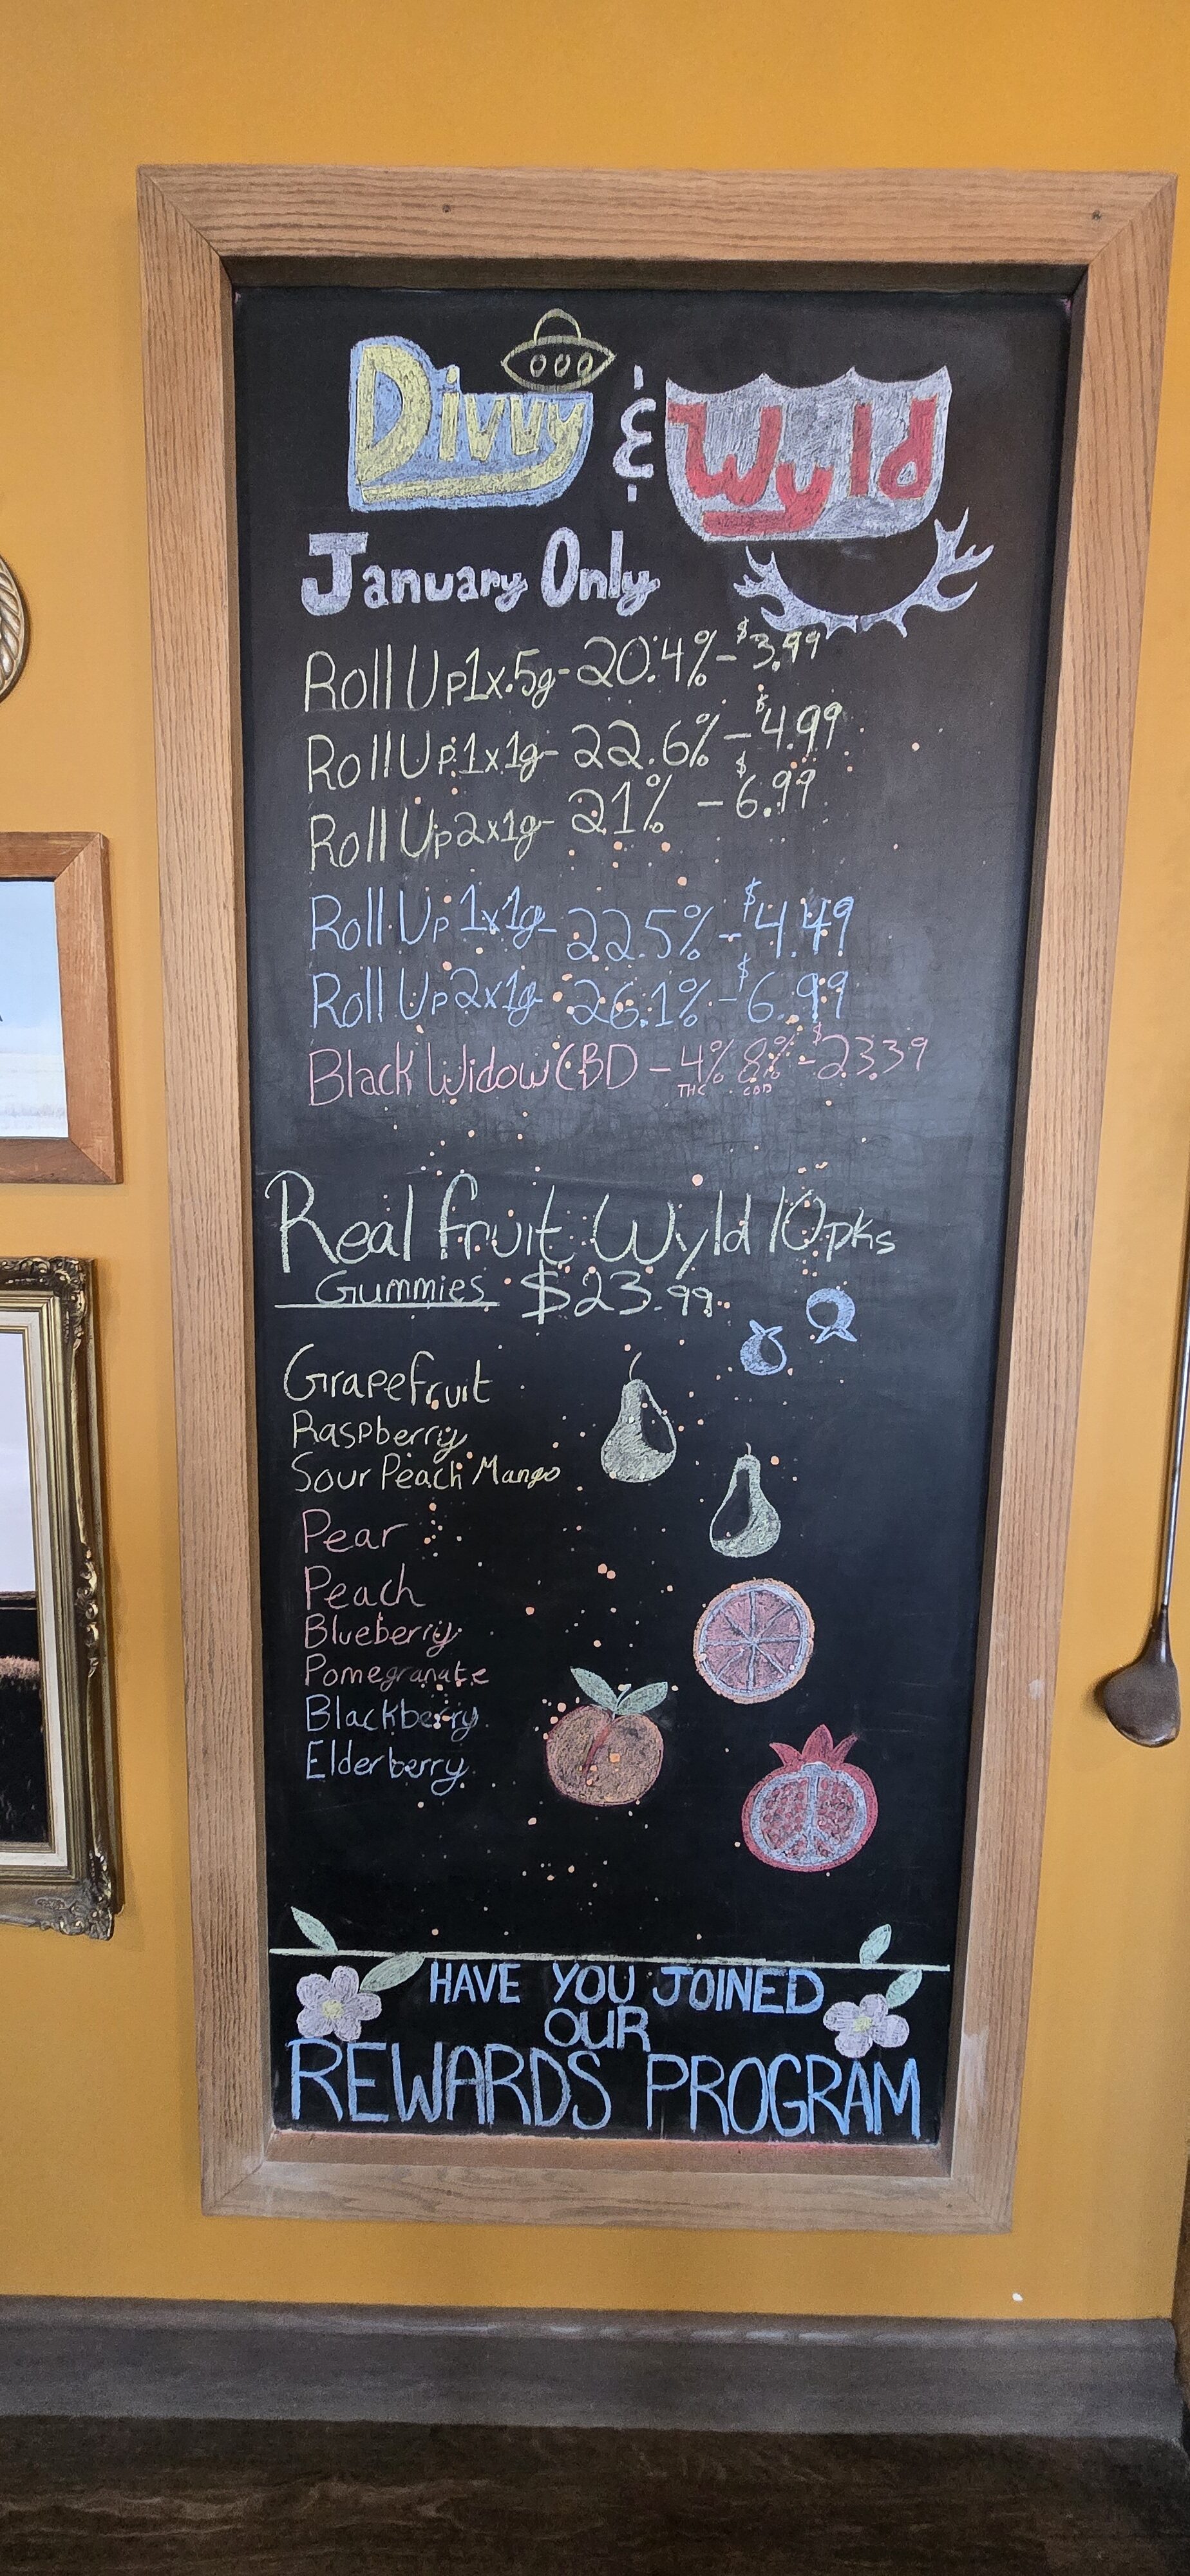 Divvy & Wyld
January Only
Roll Up 1x.5g - 20.4% - $3.99
Roll Up 1x1g - 22.6% - $4.99
Roll Up 2x1g - 21% - $6.99
Roll Up 1x1g - 22.5% - $4.49
Roll Up 2x1g - 26.1% - $6.99
Black Widow CBD - 4% THC 8% CBD - $23.39
Real fruit Wyld 10pks
Gummies $23.99
Grapefruit
Raspberry
Sour Peach Mango
Pear
Peach
Blueberry
Pomegranate
Blackberry
Elderberry
HAVE YOU JOINED
OUR
REWARDS PROGRAM